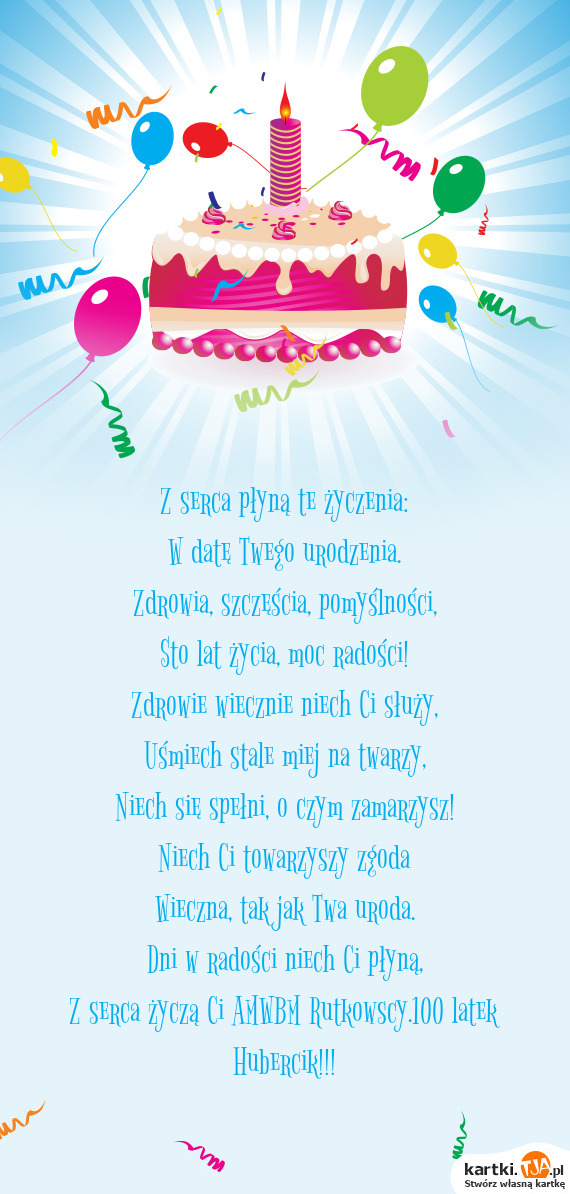 Z serca płyną te życzenia:
W datę Twego urodzenia.
Zdrowia, szczęścia, pomyślności,
Sto lat życia, moc radości!
Zdrowie wiecznie niech Ci służy,
Uśmiech stale miej na twarzy,
Niech się spełni, o czym zamarzysz!
Niech Ci towarzyszy zgoda
Wieczna, tak jak Twa uroda.
Dni w radości niech Ci płyną,
Z serca życzą Ci AMWBM Rutkowscy.100 latek
Hubercik!!!
kartki.TJA.pl
Stwórz własną kartkę